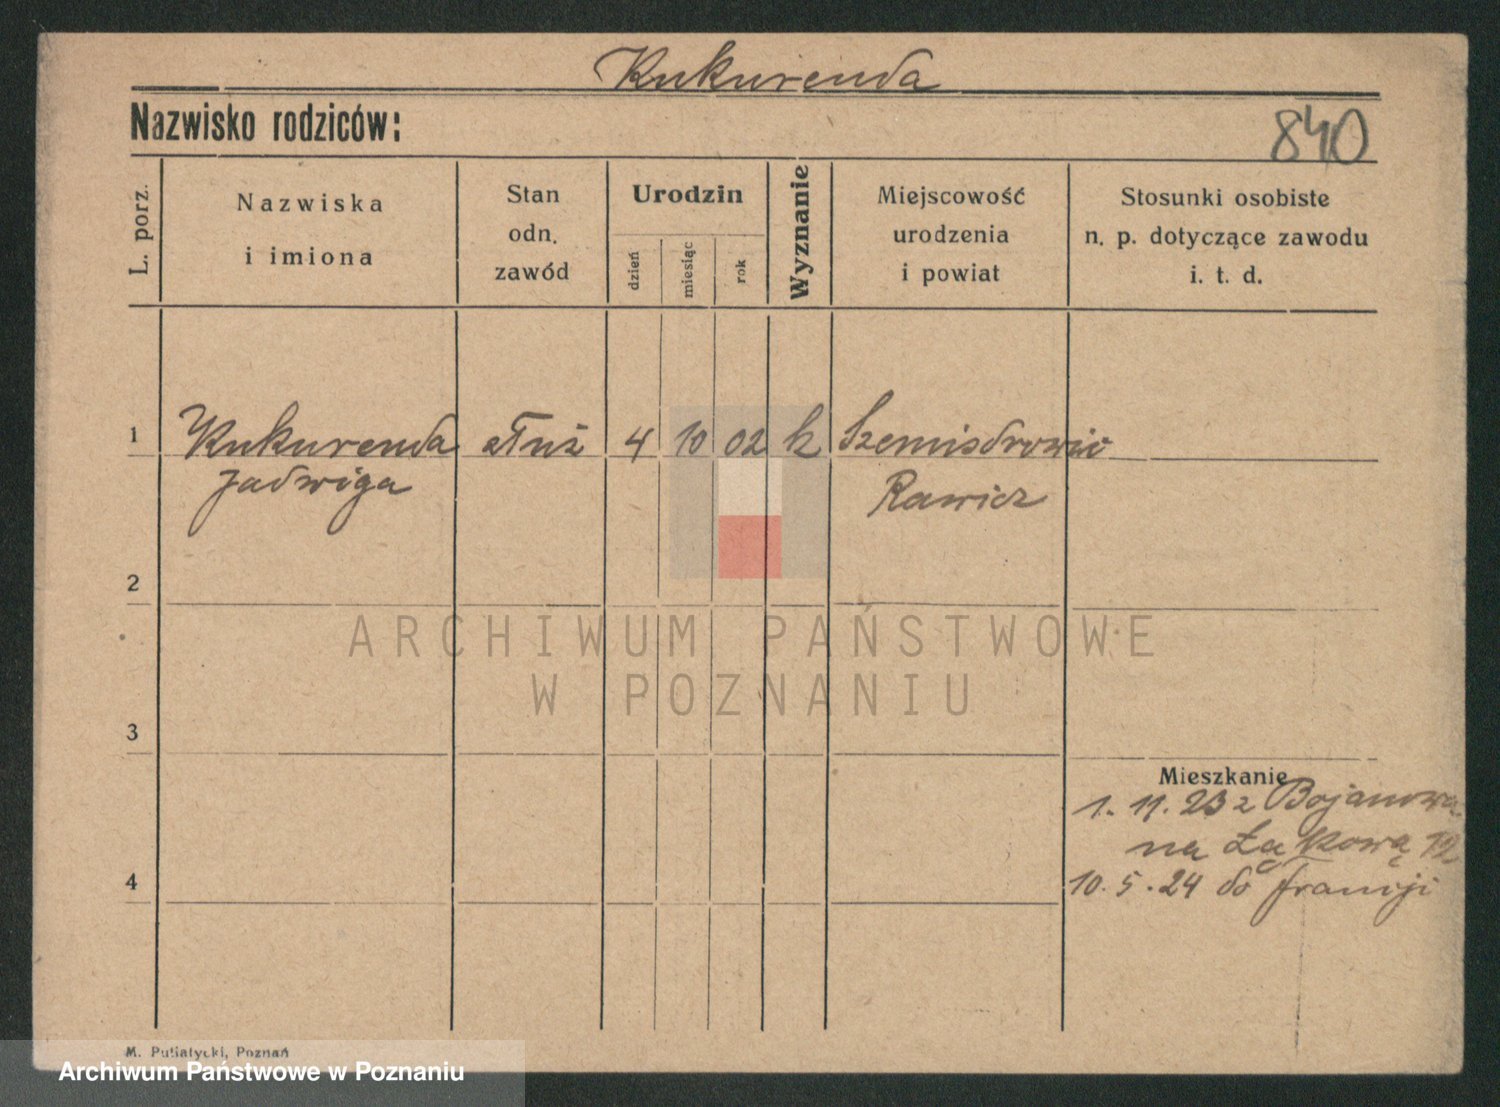 Kukurenda
Nazwisko rodziców:
840
L. porz.
Nazwiska
i imiona
Stan
odn.
zawód
Urodzin
dzień
miesiąc
rok
Wyznanie
Miejscowość
urodzenia
i powiat
Stosunki osobiste
n. p. dotyczące zawodu
i. t. d.
1 Kukurenda służ 4 10 02 k
Jadwiga Rawicz
2
ARCHIWUM PAŃSTWOWE
W POZNANIU
3
Mieszkanie
1. 11. 23 z Bojanowa
na Łąkową 12
4
10. 5. 24 do Francji
M. Putiatycki, Poznań
Archiwum Państwowe w Poznaniu